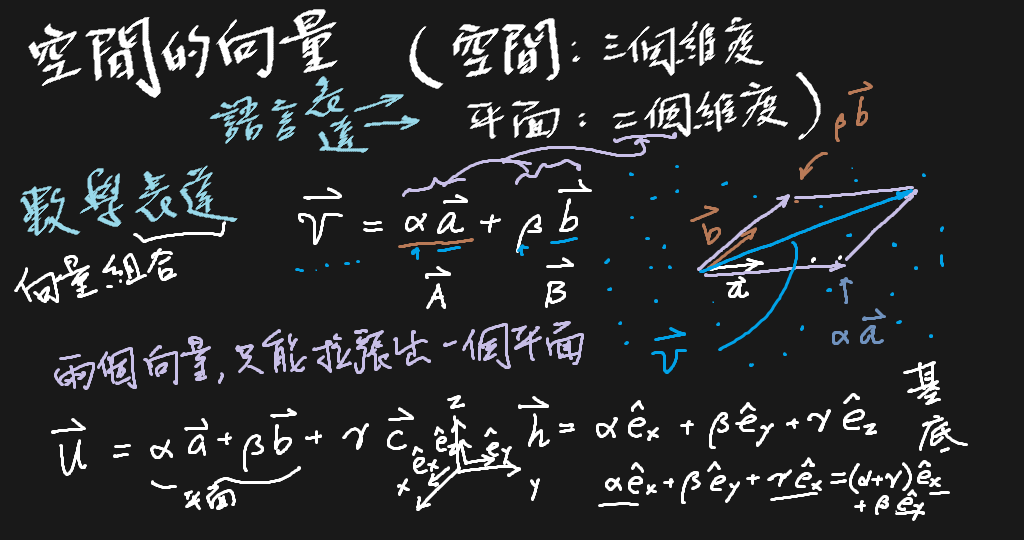 空間的向量 (空間：三個維度
語言表達 平面：二個維度)
數學表達
向量組合
v⃗ = αa⃗ + βb⃗
A⃗ B⃗
βb⃗
b⃗
a⃗
αa⃗
v⃗
兩個向量,只能拉張出一個平面
u⃗ = αa⃗ + βb⃗ + γc⃗
平面
z
êz
êx
êy
x
y
h⃗ = αêx + βêy + γêz
基底
αêx + βêy + γêx = (α+γ)êx
+ βêy